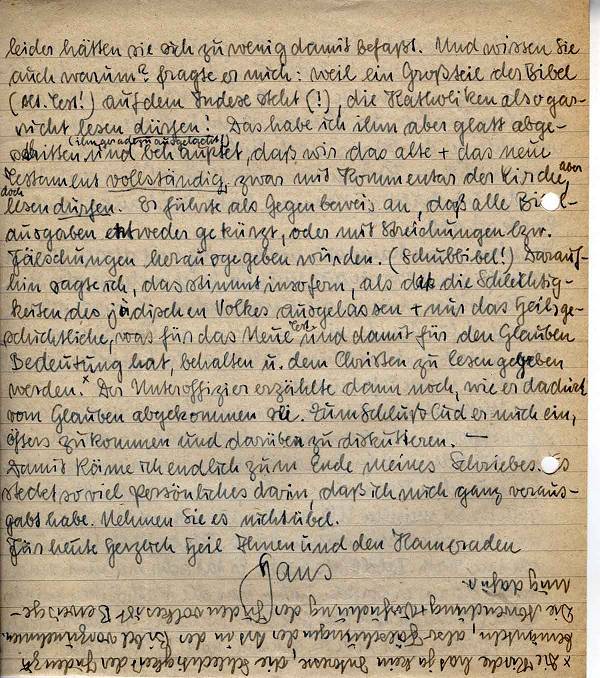 leider hätten sie sich zu wenig damit befaßt. Und wissen Sie
auch warum? fragte er mich: weil ein Großteil der Bibel
(Alt. Test!) auf dem Index steht (!), die Katholiken also gar-
nicht lesen dürfen! Das habe ich ihm aber glatt abge-
(ihn geradezu ausgelacht!)
stritten und behauptet, daß wir das alte + das neue
Testament vollständig, zwar mit Kommentar der Kirche, aber
doch
lesen dürfen. Er führte als Gegenbeweis an, daß alle Bibel-
ausgaben entweder gekürzt, oder mit Streichungen bzw.
Fälschungen herausgegeben würden. (Schulbibel!) Darauf-
hin sagte ich, das stimmt insofern, als daß die Schlechtig-
keiten des jüdischen Volkes ausgelassen + nur das Heilsge-
schichtliche, was für das Neue Test. und damit für den Glauben
Bedeutung hat, behalten u. dem Christen zu lesen gegeben
werden. x Der Unteroffizier erzählte dann noch, wie er dadurch
vom Glauben abgekommen sei. Zum Schluß lud er mich ein,
öfters zu kommen und darüber zu diskutieren. —
Damit käme ich endlich zum Ende meines Schriebes. Es
steckt so viel Persönliches darin, daß ich mich ganz veraus-
gabt habe. Nehmen Sie es nicht übel.
Für heute herzlich Heil Ihnen und den Kameraden
Hans
x Die Kirche hat ja kein Interesse, die Schlechtigkeit der Juden zu
bemänteln, also Fälschungen der Art in der Bibel vorzunehmen.
Die Abwendung + Verfluchung des Judenvolkes ist Beweis ge-
nug dafür.